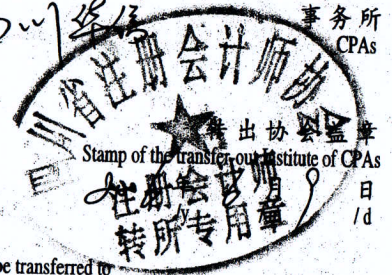 川华信
事务所
CPAs
四川省注册会计师协会
转出协会盖章
Stamp of the transfer-out Institute of CPAs
注册会计师
转所专用章
日
/d
be transferred to